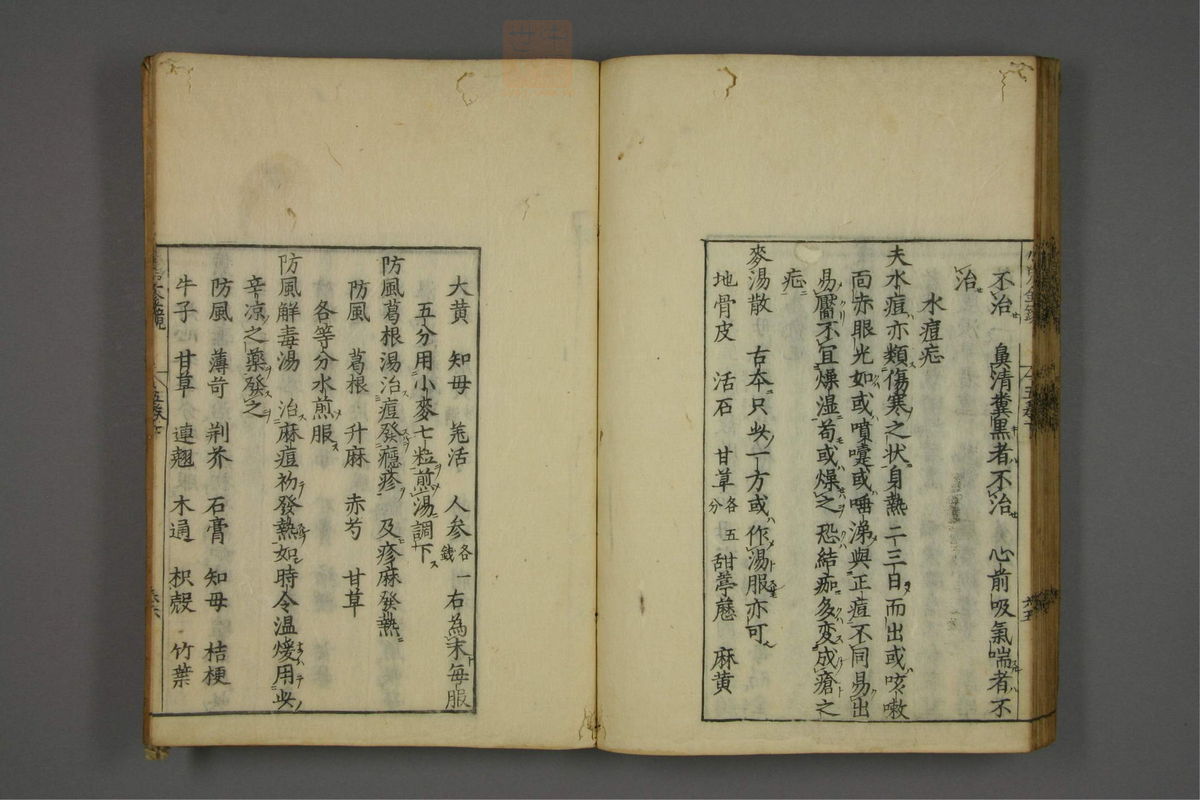 不治 鼻清糞黒者不治 心前吸氣喘者不
治
水痘疕
夫水痘亦類傷寒之状身熱二三日而出或咳嗽
面赤眼光如或噴嚏或唾涕與正痘不同易出
易靨不宜燥湿苟或燥之恐結痂多変成瘡之
疕
麥湯散 古本只此一方或作湯服亦可
地骨皮 活石 甘草各五分 甜葶藶 麻黄
大黄 知母 羌活 人参各一錢 右為末毎服
五分用小麥七粒煎湯調下
防風葛根湯治痘發癮疹 及疹麻發熱
防風 葛根 升麻 赤芍 甘草
各等分水煎服
防風解毒湯 治麻痘初發熱如時令温煖用此
辛凉之藥發之
防風 薄苛 荆芥 石膏 知母 桔梗
牛子 甘草 連翹 木通 枳殻 竹葉